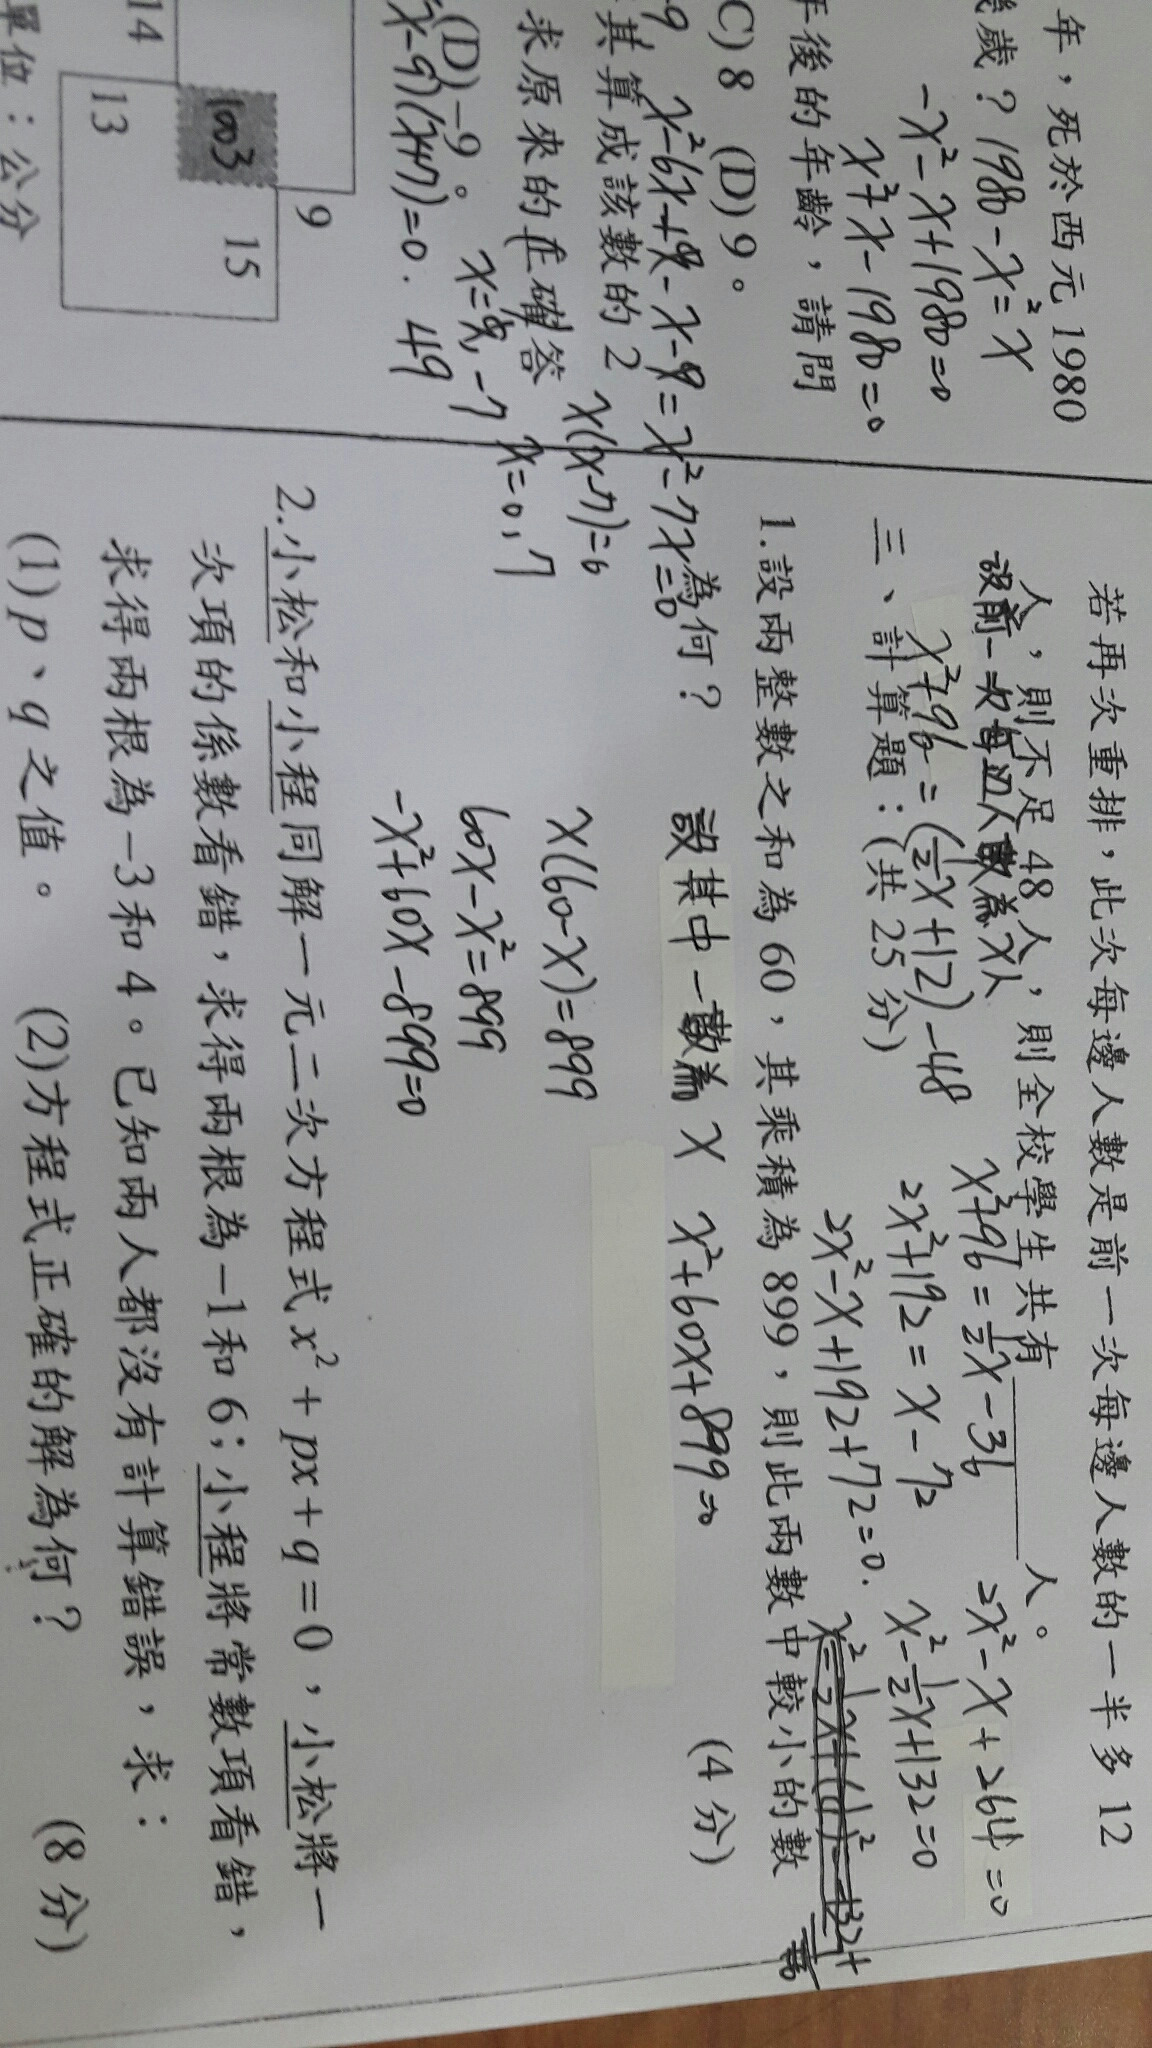 年，死於西元 1980
歲？ 1980-x=x²
-x²-x+1980=0
年後的年齡，請問
x²+x-1980=0
C) 8 (D) 9。
x²-6x+9-x-9=x²-7x=0
其算成該數的 2
x(x-7)=0
求原來的正確答
x=0,7
(D) -9。
x=9,-7
x-9)(x+7)=0. 49
14
1003
9
13
15
單位：公分
若再次重排，此次每邊人數是前一次每邊人數的一半多 12
人，則不足 48 人，則全校學生共有＿＿＿＿人。
設前一次每邊人數為x人
x²+96=(½x+12)-48
x²+96=½x-36
2x²+192=x-72
2x²-x+192+72=0.
2x²-x+264=0
x²-½x+132=0
三、計算題：(共 25 分)
1. 設兩整數之和為 60，其乘積為 899，則此兩數中較小的數
為何？ (4 分)
設其中一數為 x
x²+60x+899=0
x(60-x)=899
60x-x²=899
-x²+60x-899=0
2. 小松和小程同解一元二次方程式 x² + px + q = 0，小松將一
次項的係數看錯，求得兩根為 -1 和 6；小程將常數項看錯，
求得兩根為 -3 和 4。已知兩人都沒有計算錯誤，求：
(1) p、q 之值。 (2) 方程式正確的解為何？ (8 分)